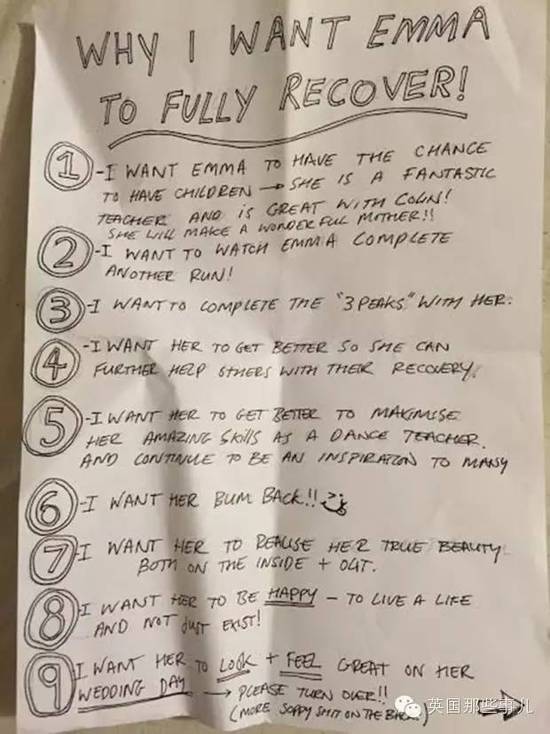 WHY I WANT EMMA
TO FULLY RECOVER!
1 - I WANT EMMA TO HAVE THE CHANCE
TO HAVE CHILDREN → SHE IS A FANTASTIC
TEACHER AND IS GREAT WITH COLIN!
SHE WILL MAKE A WONDERFUL MOTHER!!
2 - I WANT TO WATCH EMMA COMPLETE
ANOTHER RUN!
3 - I WANT TO COMPLETE THE "3 PEAKS" WITH HER.
4 - I WANT HER TO GET BETTER SO SHE CAN
FURTHER HELP OTHERS WITH THEIR RECOVERY.
5 - I WANT HER TO GET BETTER TO MAXIMISE
HER AMAZING SKILLS AS A DANCE TEACHER.
AND CONTINUE TO BE AN INSPIRATION TO MANY
6 - I WANT HER BUM BACK!!
7 - I WANT HER TO REALISE HER TRUE BEAUTY
BOTH ON THE INSIDE + OUT.
8 - I WANT HER TO BE HAPPY - TO LIVE A LIFE
AND NOT JUST EXIST!
9 - I WANT HER TO LOOK + FEEL GREAT ON HER
WEDDING DAY → PLEASE TURN OVER!!
(MORE SOPPY SHIT ON THE BACK)
英国那些事儿